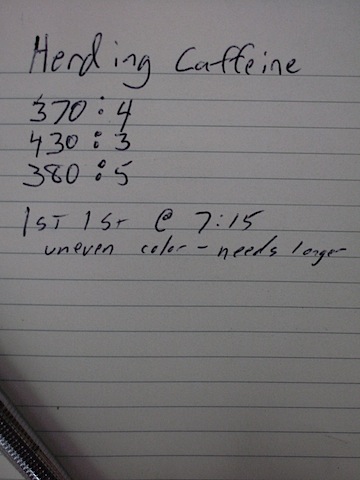 Herding Caffeine
370 : 4
430 : 3
380 : 5
1ST 1ST @ 7:15
uneven color - needs longer